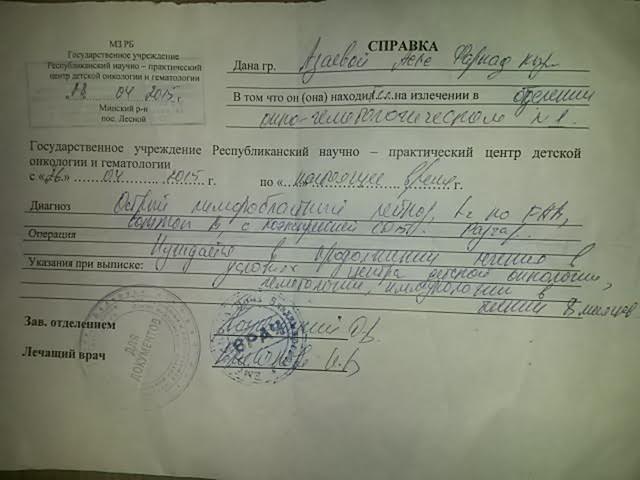 МЗ РБ
Государственное учреждение
Республиканский научно – практический
центр детской онкологии и гематологии
04 2015г.
Минский р-н
пос. Лесной
СПРАВКА
Дана гр. Агаевой Фархад кызы
В том что он (она) находилась на излечении в отделении
онко-гематологическом № 1.
Государственное учреждение Республиканский научно – практический центр детской
онкологии и гематологии
с «26» 04 2015 г. по «настоящее время г.
Диагноз Острый лимфобластный лейкоз, L2 по FAB,
common B с
Операция
Нуждается в продолжении лечения в
Указания при выписке: условиях центра детской онкологии,
гематологии, иммунологии в
течении 8 месяцев
Зав. отделением
Лечащий врач
ДЛЯ ДОКУМЕНТОВ
ВРАЧ